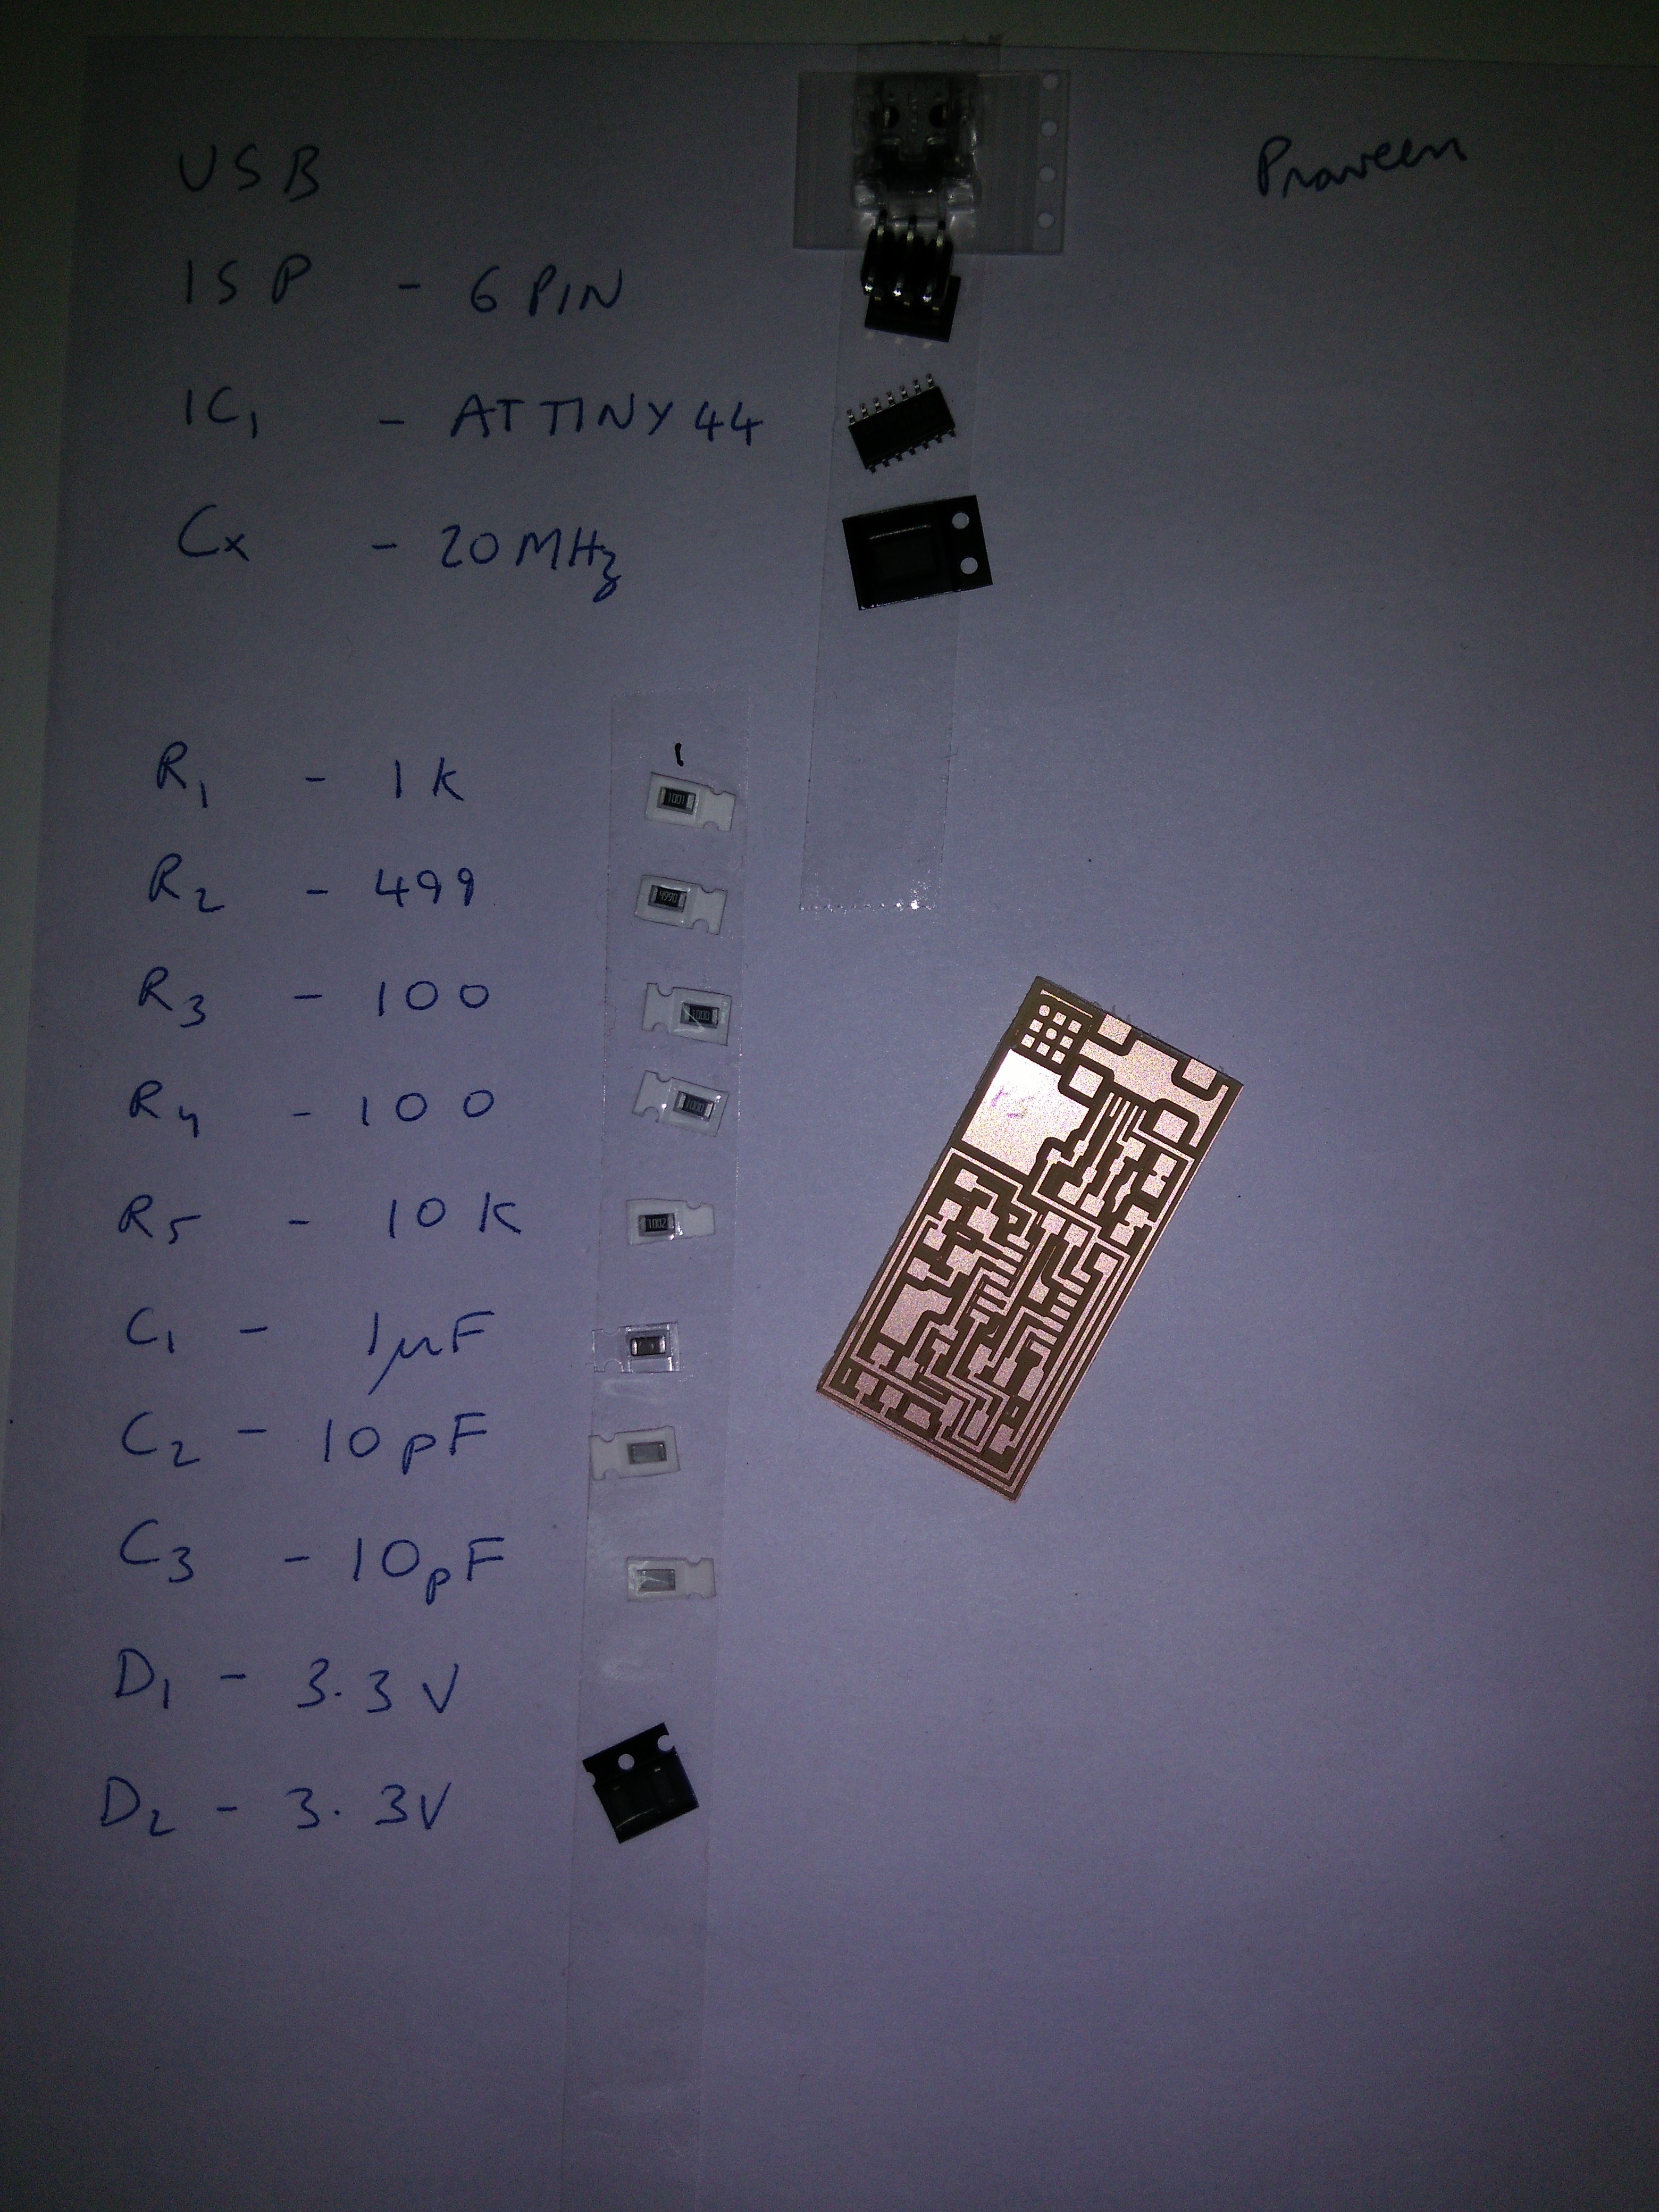 USB
Praveen
ISP - 6 PIN
IC1 - ATTINY44
Cx - 20MHz
1
R1 - 1K
1001
R2 - 499
4990
R3 - 100
1000
R4 - 100
1000
R5 - 10K
1002
C1 - 1µF
C2 - 10pF
C3 - 10pF
D1 - 3.3V
D2 - 3.3V